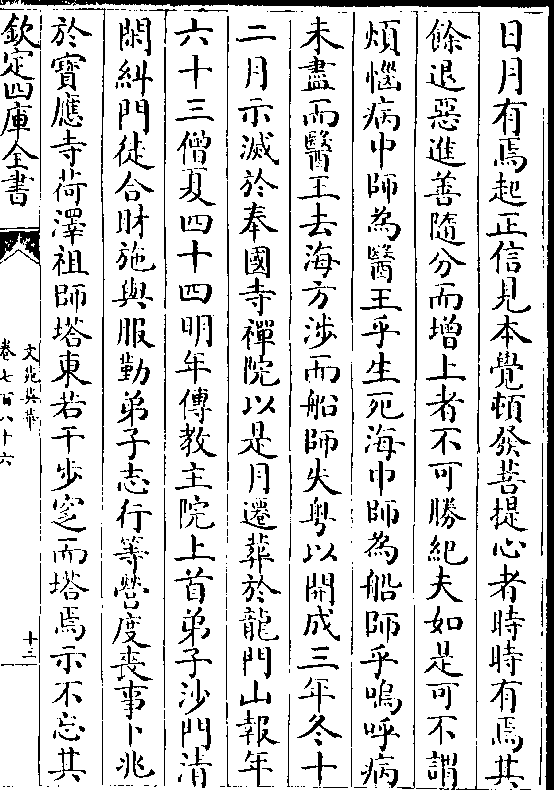 日月有焉起正信見本覺頓發菩提心者時時有焉其
餘退惡進善隨分而增上者不可勝紀夫如是可不謂
煩惱病中師為醫王乎生死海中師為船師乎嗚呼病
未盡而醫王去海方涉而船師失粤以開成三年冬十
二月示滅於奉國寺禪院以是月遷葬於龍門山報年
六十三僧夏四十四明年傳教主院上首弟子沙門清
閑糾門徒合財施與服勤弟子志行等營度喪事卜兆
於寶應寺荷澤祖師塔東若干步窆而塔焉示不忘其
欽定四庫全書
文苑英華
卷七百八十六
十三